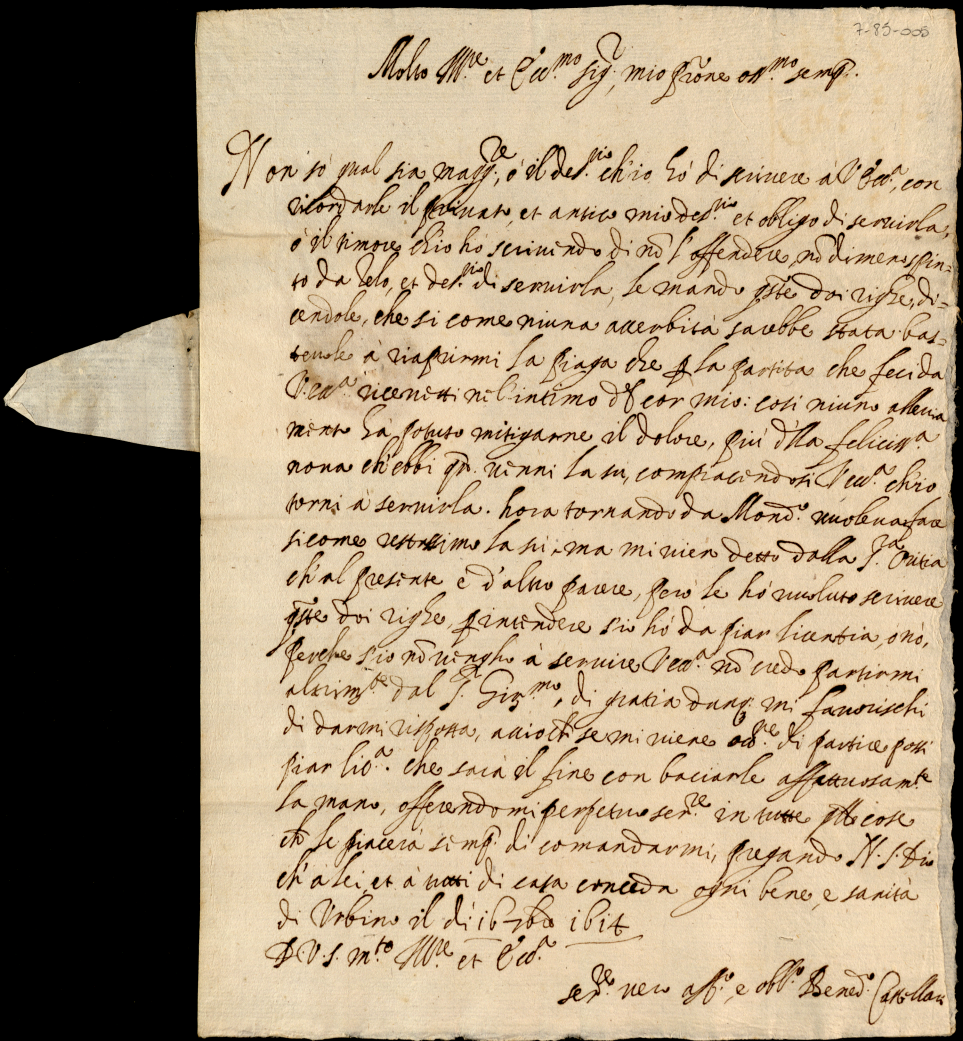 7-85-005
Molto Ill.re et Ecc.mo sig.r, mio prõne oss.mo semp.
Non sò qual sia magg.re, ò il des.rio ch'io hò di scrivere à V Ecc.a, con
ricordarle il privato, et antico mio des.rio et obligo di servirla,
ò il timore ch'io hò scrivendo di nõ l'offendere, nõdimeno spin-
to da zelo, et des.rio di servirla, le mando q̃ste doi righe, di-
cendole, che si come niuna accerbità sarebbe stata bas-
tevole à riaprirmi la piaga che p la partita che feci da
V.ecc.a ricevetti nel intimo del cor mio: cosi niuno allevia
mento hà potuto mitigarne il dolore, più della feliciss.a
nova ch'ebbi qñ. venni la sù, compiacendosi V ecc.a ch'io
torni à servirla. hora tornando da Mond.o volevo fare
sicome restassimo la sù, ma mi vien detto dalla S.ra
ch'al presente è d'altro parere, però le hò voluto scrivere
q̃ste doi righe, p intendere s'io hò da piar licentia, ò nò,
perche s'io nõ venghi à servire V ecc.a nõ credo partirmi
altrim.te dal S.r Gir.mo, di gratia dunq; mi favorischi
di darmi risposta, acciochè se mi viene occ.ne di partire possi
piar lic.a. che sarà il fine con baciarle affettuosam.te
la mano, offerendomi perpetuo ser.re in tutte q̃lle cose
ch̃ le piacerà semp. di comandarmi, pregando N. S. Dio
ch'a lei, et à tutti di casa conceda ogni bene, e sanità
di Urbino il dì 16 7bre 1614
D V. S. m.to Ill.re et Ecc.a
ser.re vero aff.o, e obl.o Bened.o